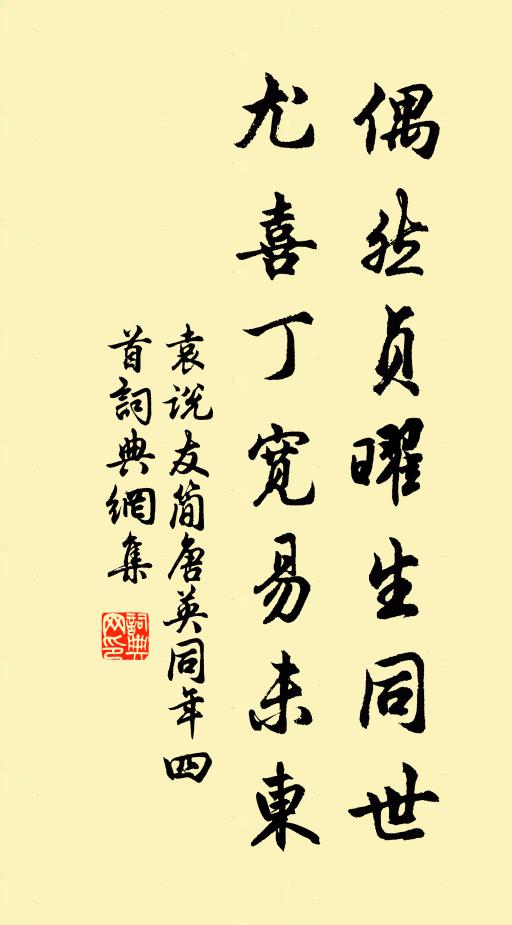 偶然貞曜生同世
尤喜丁寬易未東
袁说友简唐英同年四
首詞典網集
詞典网印